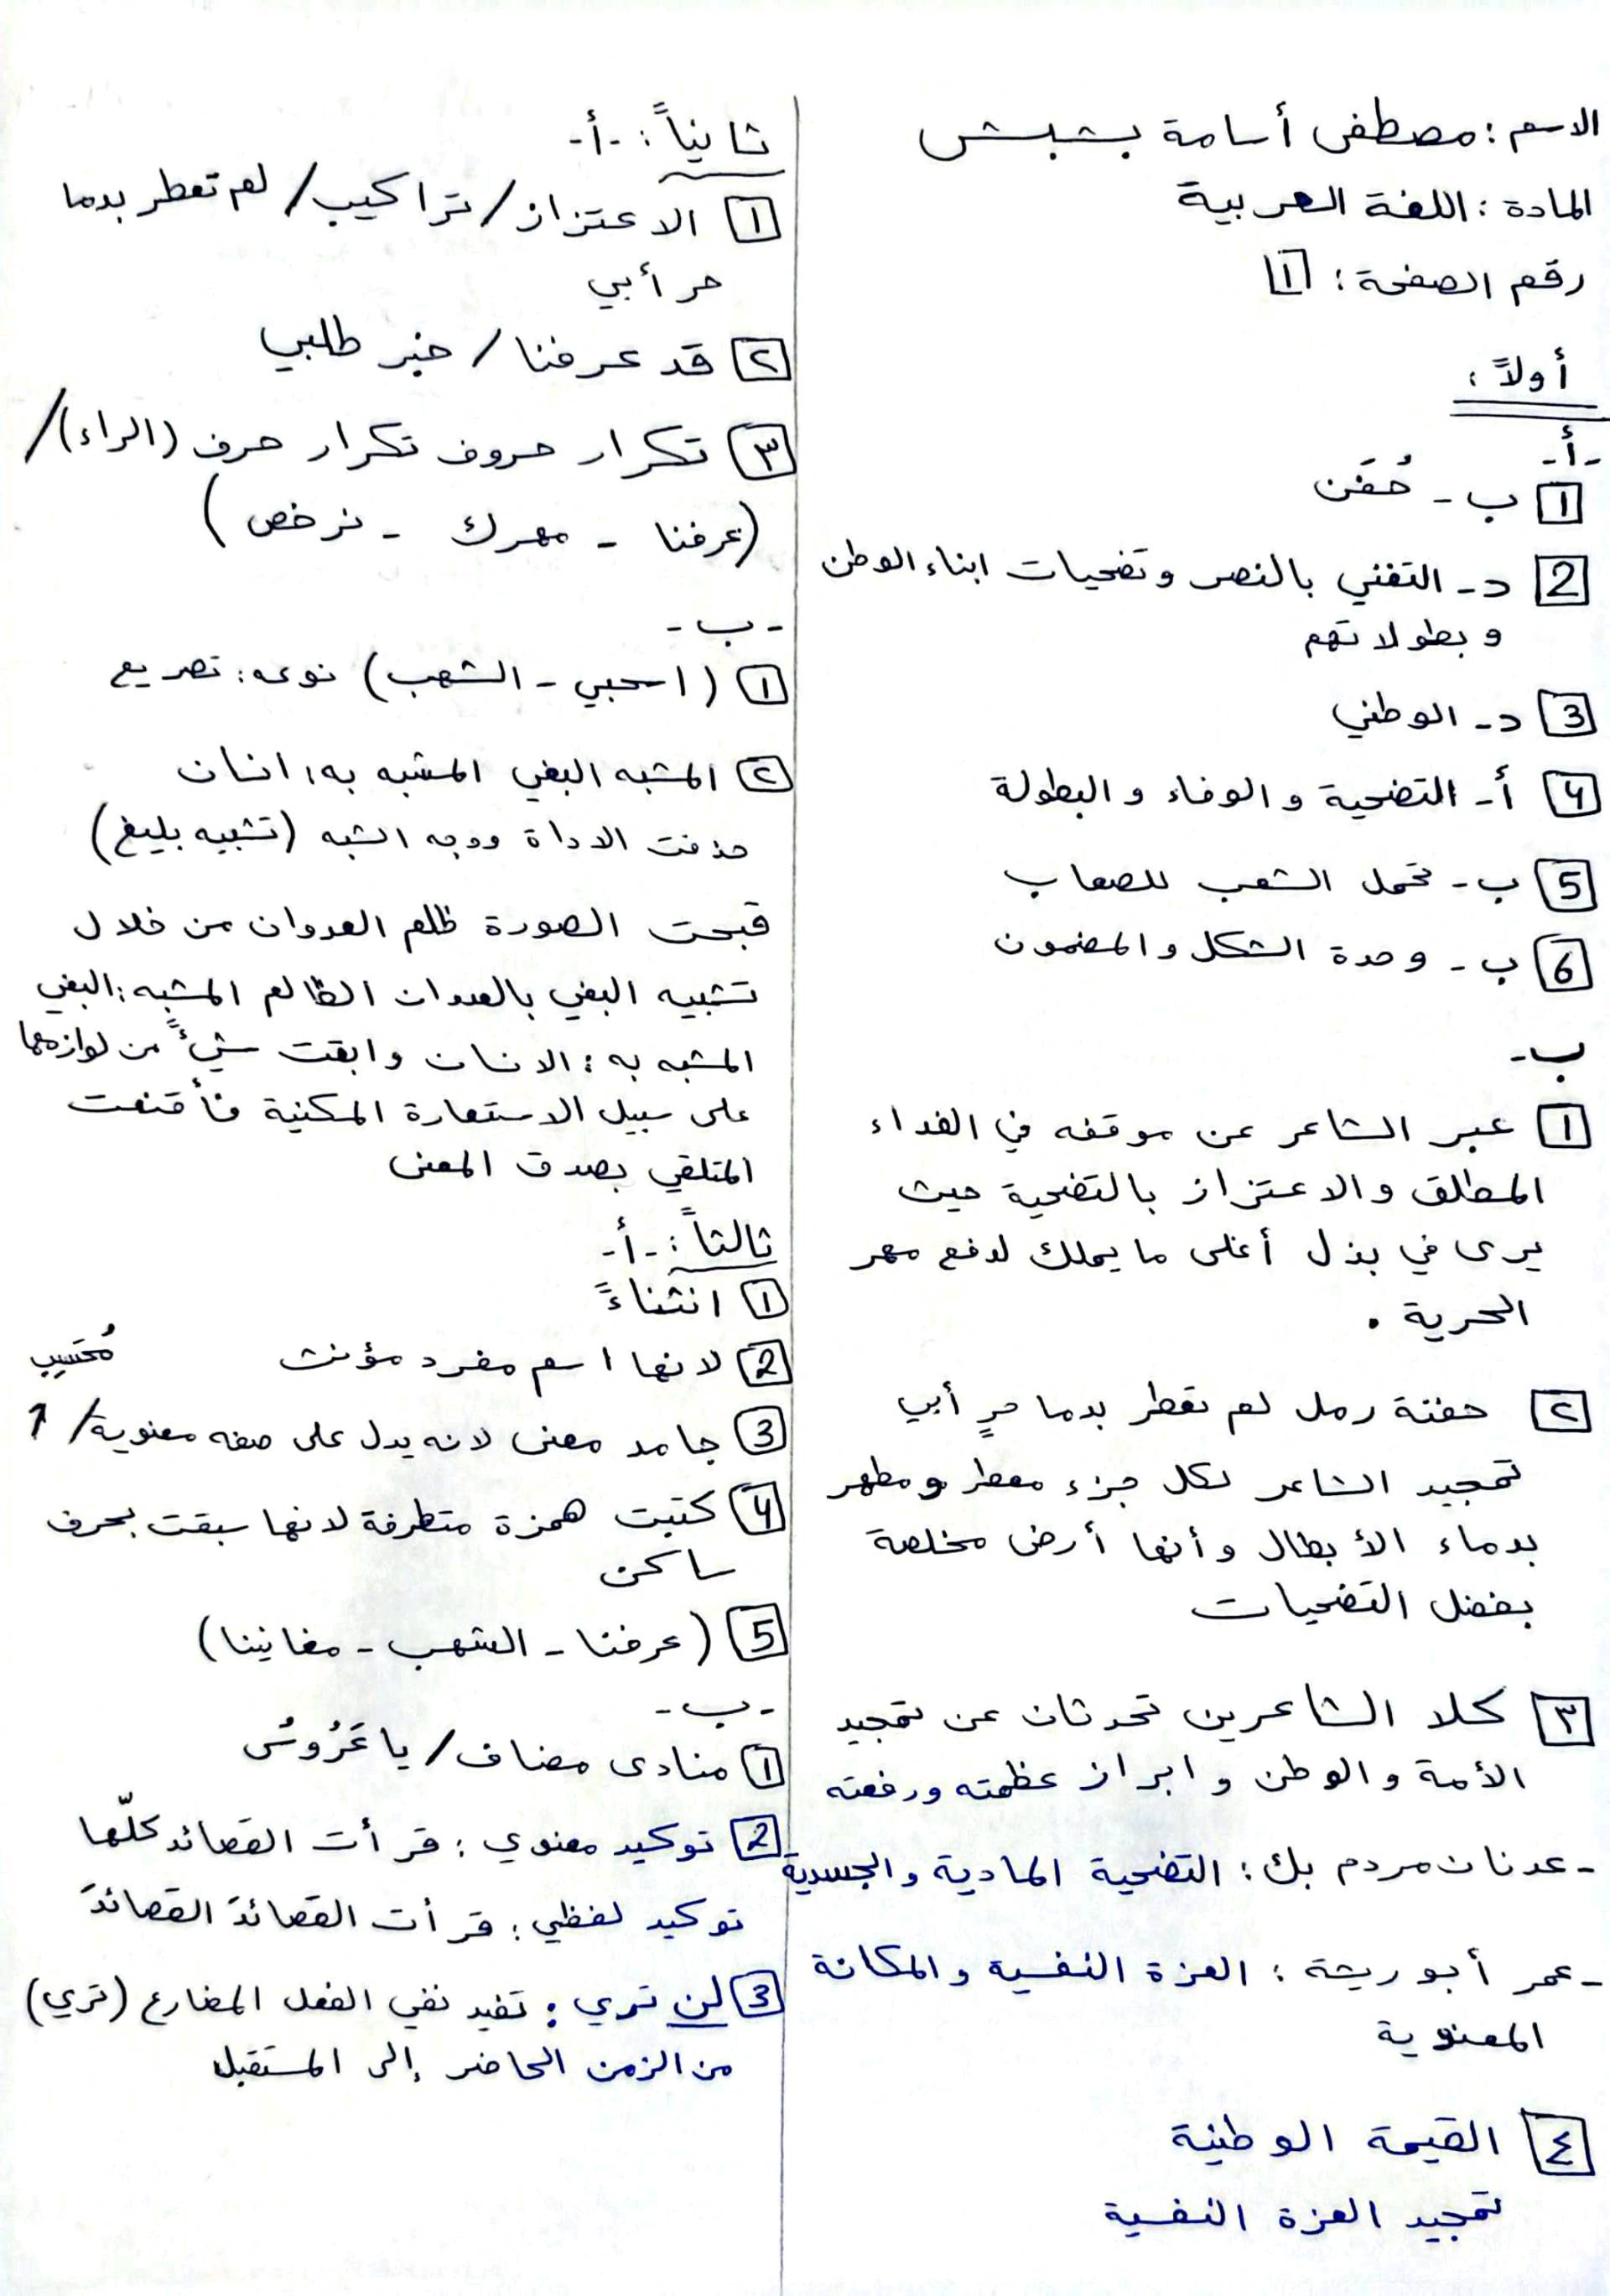 الاسم : مصطفى أسامة بشبش
المادة : اللغة العربية
رقم الصفحة : 1
أولاً :
- أ -
1 ب - حُفَن
2 د - التغني بالنصر وتضحيات ابناء الوطن
وبطولاتهم
3 د - الوطني
4 أ - التضحية والوفاء والبطولة
5 ب - تحمل الشعب للصعاب
6 ب - وحدة الشكل والمضمون
ب -
1 عبر الشاعر عن موقفه في الفداء
المطلق والاعتزاز بالتضحية حيث
يرى في بذل أغلى ما يملك لدفع مهر
الحرية .
٢ حفنة رمل لم تعطر بدما حرٍ أبي
تمجيد الشاعر لكل جزء معطر ومطهر
بدماء الأبطال وأنها أرض مخلصة
بفضل التضحيات
٣ كلا الشاعرين تحدثان عن تمجيد
الأمة والوطن وابراز عظمته ورفعته
- عدنان مردم بك : التضحية المادية والجسدية
- عمر أبو ريشة : العزة النفسية والمكانة
المعنوية
٤ القيمة الوطنية
تمجيد العزة النفسية
ثانياً : - أ -
1 الاعتزاز / تراكيب / لم تعطر بدما
حر أبي
٢ قد عرفنا / خبر طلبي
٣ تكرار حروف تكرار حرف (الراء) /
(عرفنا - مهرك - نرخص)
- ب -
1 (اسحبي - الشهب) نوعه : تصريع
٢ المشبه البغي المشبه به : انسان
حذفت الاداة ووجه الشبه (تشبيه بليغ)
قبحت الصورة ظلم العدوان من خلال
تشبيه البغي بالعدوان الظالم المشبه : البغي
المشبه به : الانسان وابقت شيءً من لوازمها
على سبيل الاستعارة المكنية فأقنعت
المتلقي بصدق المعنى
ثالثاً : - أ -
1 انثناءً
2 لانها اسم مفرد مؤنث
3 جامد معنى لانه يدل على صفه معنوية / ↑
4 كتبت همزة متطرفة لانها سبقت بحرف
ساكن
5 (عرفنا - الشهب - مغانينا)
- ب -
1 منادى مضاف / يا عَرُوسُ
2 توكيد معنوي : قرأت القصائد كلّها
توكيد لفظي : قرأت القصائدَ القصائدَ
3 لن تري : تفيد نفي الفعل المضارع (تري)
من الزمن الحاضر إلى المستقبل